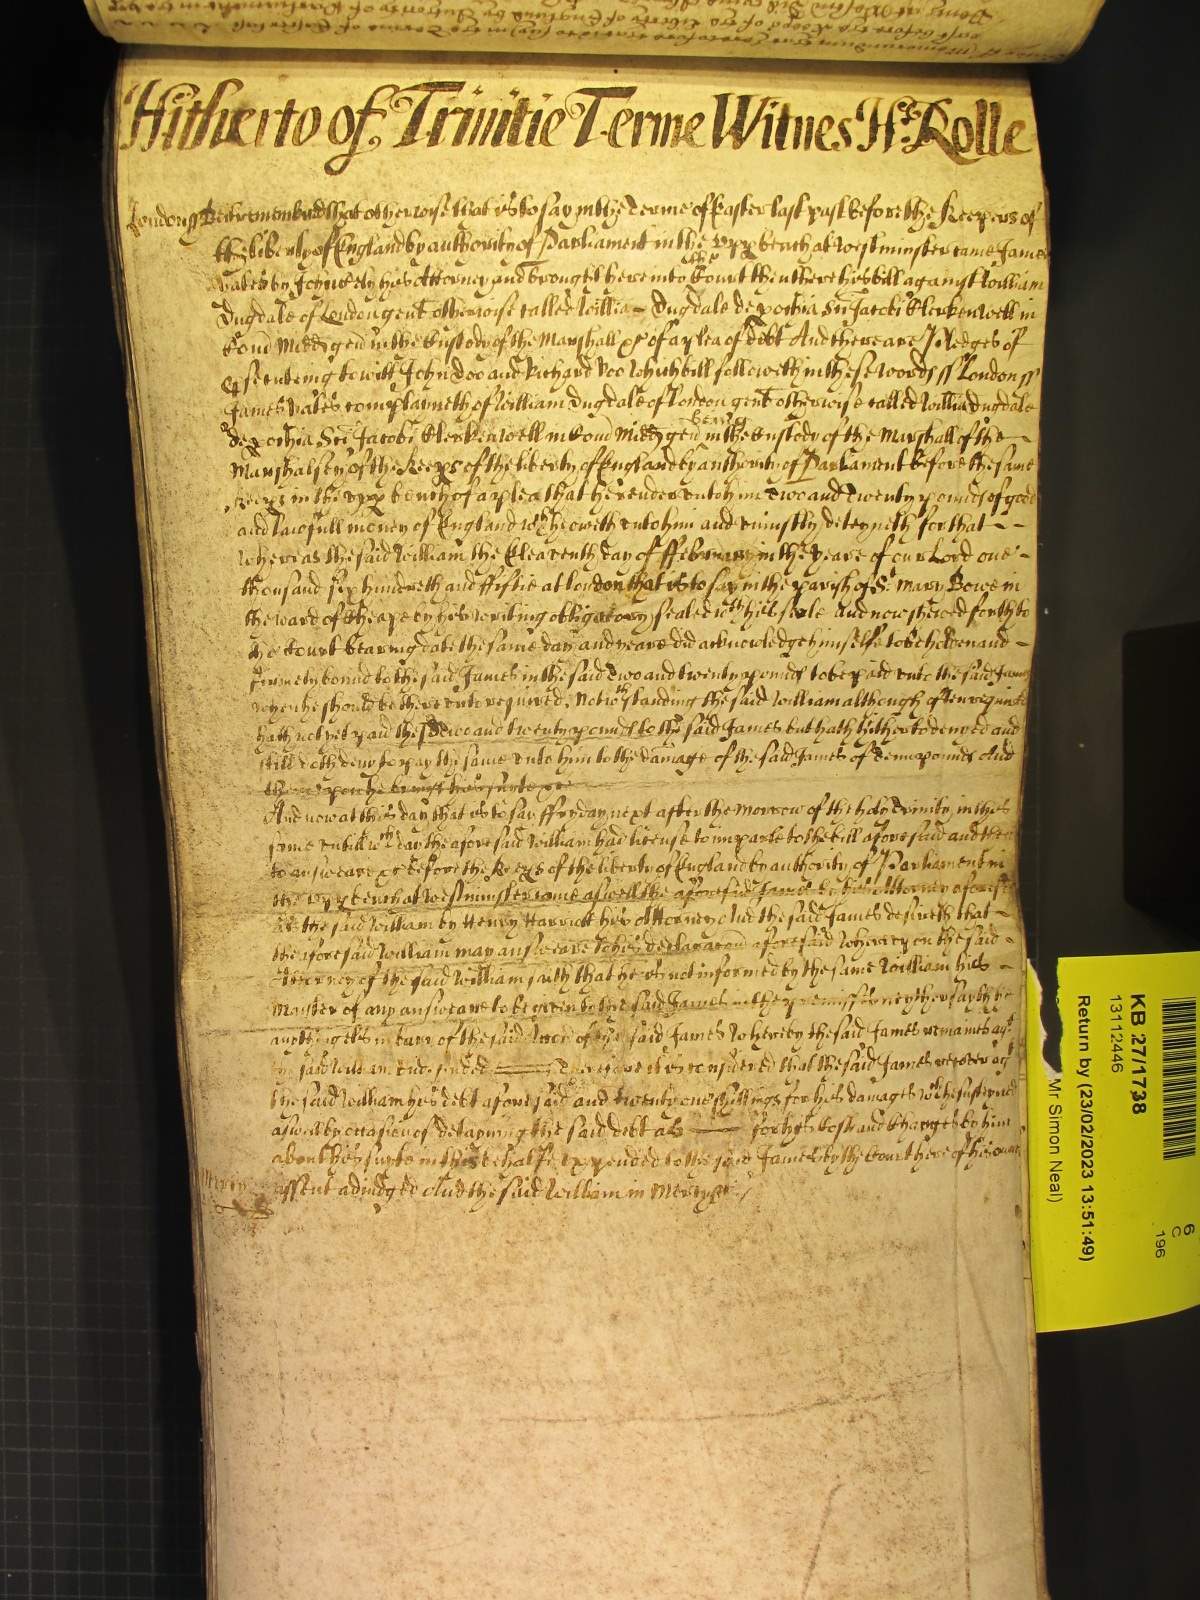 Hitherto of Trinitie Terme Witnes H: Rolle
London ss Be it remembred that otherwise that is to say in the Terme of Easter last past before the Keepers of
the liberty of England by authority of Parliament in the upp bench at Westminster came James
Yates by John his Attorney and brought here into the Court then there his bill against William
Dugdale of London gent otherwise called Willia Dugdale de pochia Sci Jacobi Clerkenwell in
Com Midd gen in the Custody of the Marshall &c of a plea of debt And there are Pledges of
psecuteing to witt John Doo and Richard Roo Which bill followeth in these words ss London ss
James Yates complayneth of William Dugdale of London gent otherwise called Willia Dugdale
de pochia Sci Jacobi Clerkenwell in Com Midd gen being in the Custody of the Marshall of the
Marshalsey of the Keeps of the liberty of England by authority of Parliament before the same
Keeps in the upp bench of a plea that he render unto him Two and Twenty pounds of good
and lawfull money of England wch he oweth unto him and uniustly deteyneth for that
Whereas the said William the Eleaventh day of ffebruary in the yeare of our Lord one
thousand six hundreth and ffiftie at london that is to say in the parish of St Mary Bowe in
the ward of Cheape by his writing obligatory sealed wth his seale and now shewed forth to
the Court bearing date the same day and yeare did acknowledge himselfe to be holden and
firmely bound to the said James in the said Two and twenty pounds to be paid unto the said James
when he should be thereunto required. Notwthstanding the said William although often required
hath not yet paid the sd Two and twenty pounds to the said James but hath hitherto denyed and
still doth deny to pay the same unto him to the damage of the said James of Tenn pounds And
thereupon he bringeth his suite &c
And now at this day that is to say ffryday next after the Morrow of the holy Trinity in this
same untill wch day the aforesaid William had license to imparle to the bill aforesaid and then
to answeare &c before the Keeps of the liberty of England by authority of Parliament in
the upp bench at Westminster came aswell the aforesaid James by his Attorney aforesd
As the said William by Henry Harriott his Attorney And the said James desireth that
the aforesaid William may answeare to his declaracon aforesaid Whereupon the said
Attorney of the said William saith that he is not informed by the same William his
Master of any answeare to be given to the said James in the premisses neyther sayth he
any thing els in barr of the said accon of the said James Whereby the said James remaines agt
the said William undefended Therefore it is considered that the said James recover agt
the said William his debt aforesaid and twenty one shillings for his damages wch he susteyned
aswell by occasion of detayning the said debt as for his Costs and Charges by him
about his suyte in this behalfe expended to the said James by the Court here of his owne
assent adiudged And the said William in Mercy &c
Mercy
KB 27/1738
13112446
Return by (23/02/2023 13:51:49)
Mr Simon Neal)
6
C
196